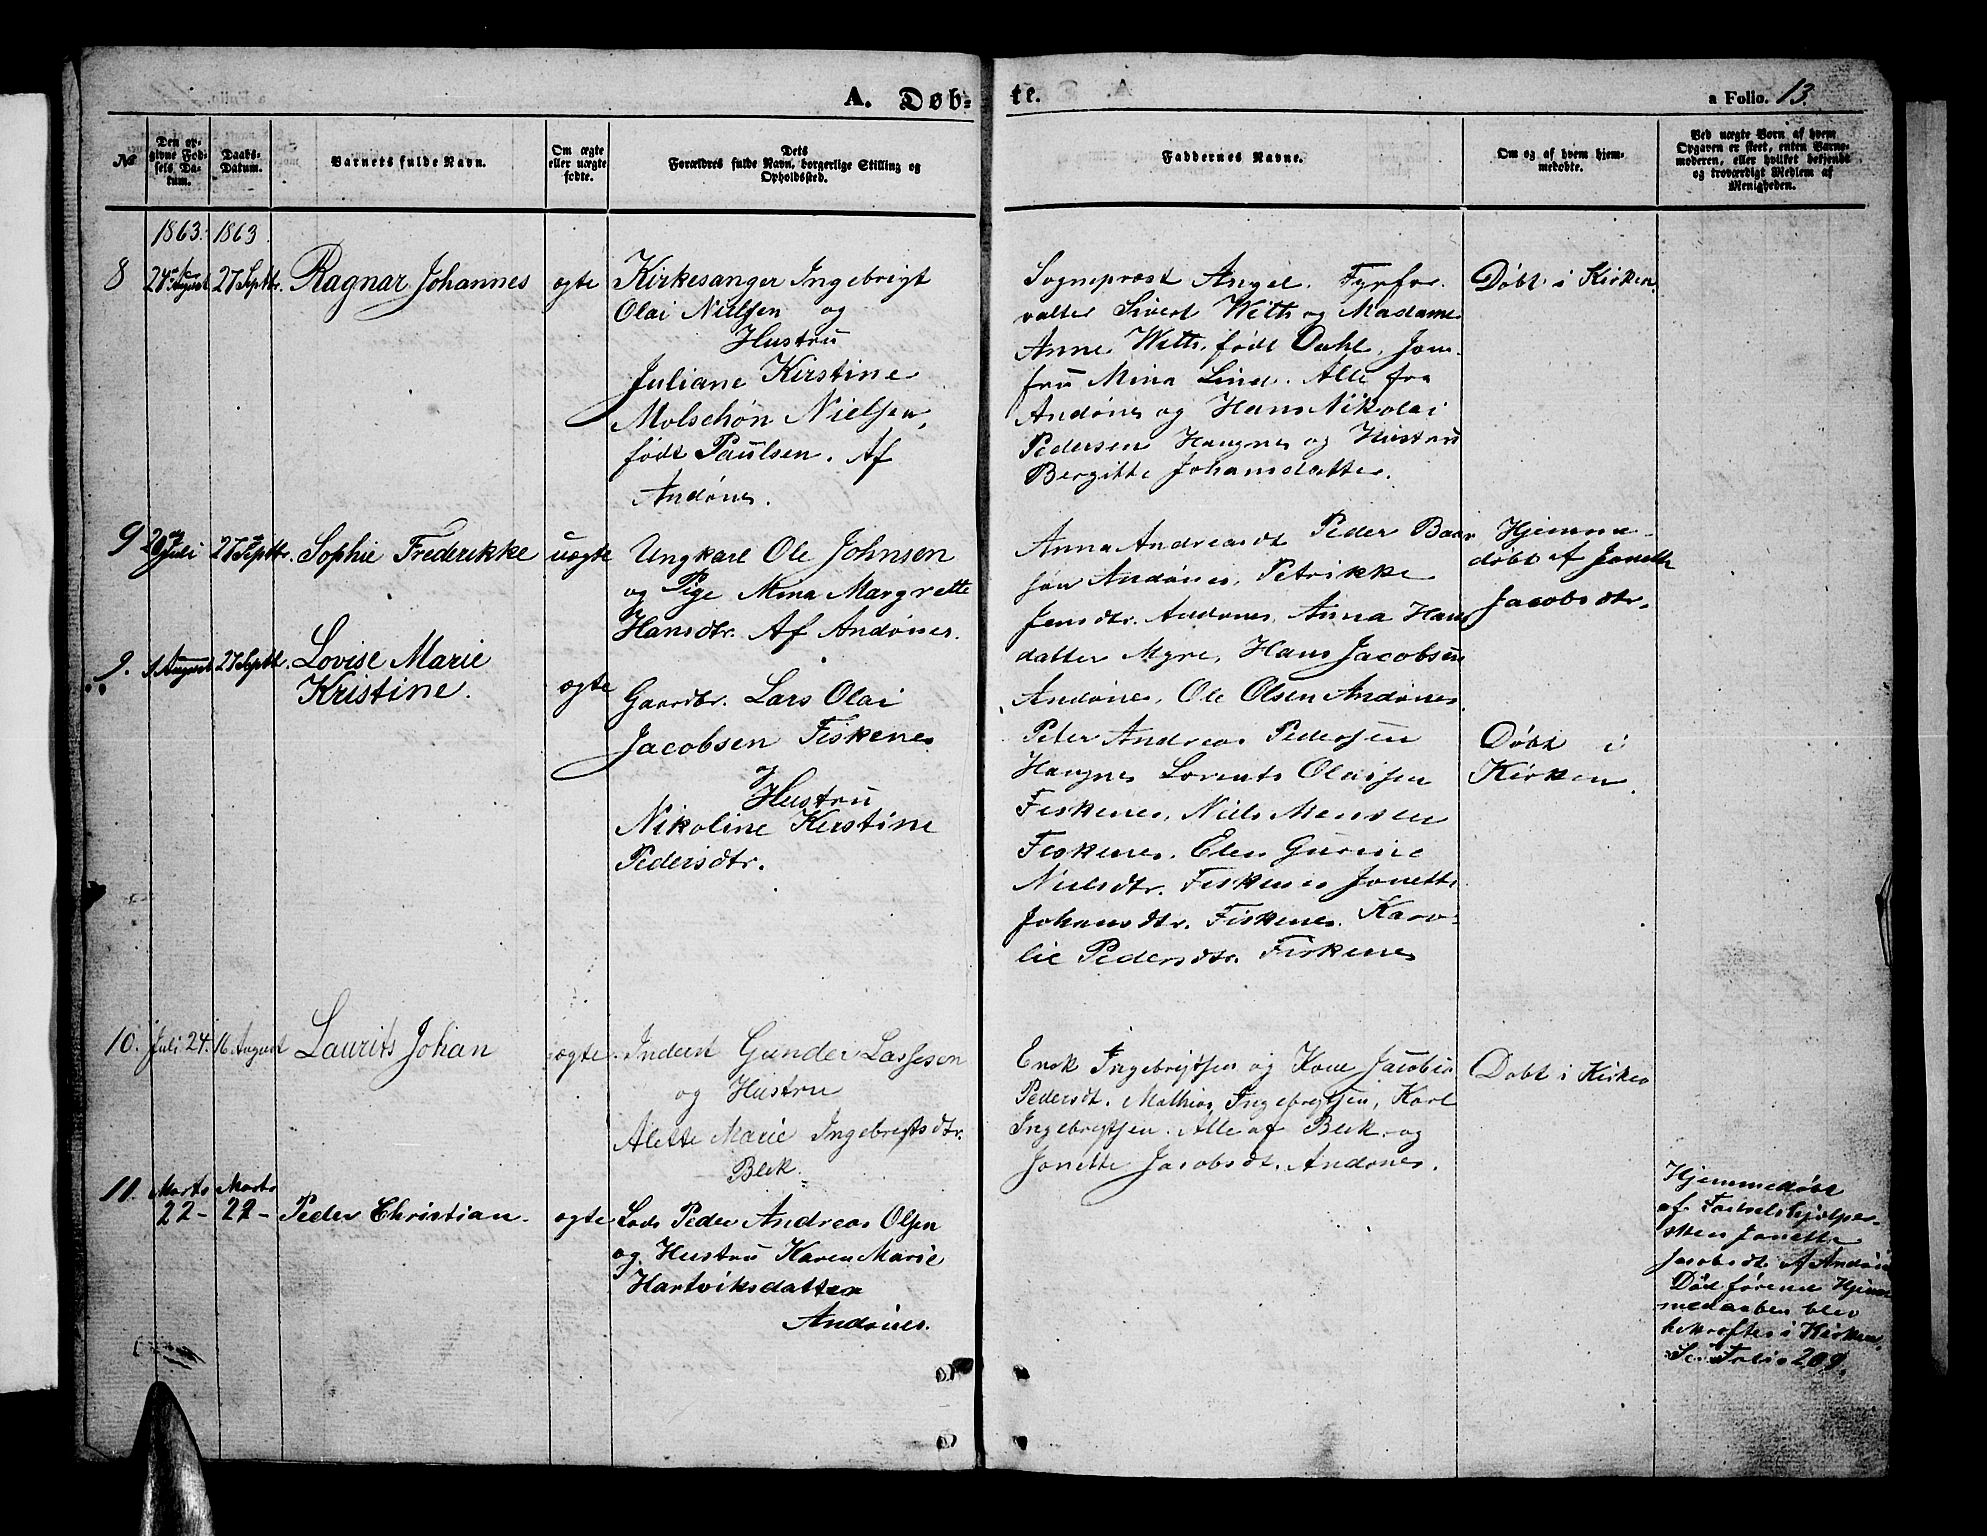 A. Døb-
te.
a Folio. 13
No
Den op-
givne Fød-
sels Da-
tum.
Daabs-
Datum.
Barnets fulde Navn.
Om ægte
eller uægte
fødte.
Dets
Forældres fulde Navn, borgerlige Stilling og
Opholdssted.
Faddernes Navne.
Om og af hvem hjem-
medøbte.
Ved uægte Børn af hvem
Opgaven er skeet, enten Barne-
moderen, eller hvilket bekjendt
og troværdigt Medlem af
Menigheden.
1863. 1863
8
24de August
27 Septbr.
Ragnar Johannes
ægte
Kirkesanger Ingebrigt
Olai Nielsen og
Hustru
Juliane Kirstine
Molschøn Nielsen,
født Paulsen. Af
Andønes.
Sogneprest Angel. Fyrfor-
valter Sivert With og Madame
Anne With, født Dahl, Jom-
fru Mina Lind. Alle fra
Andønes og Hans Nikolai
Pedersen Haugnes og Hustru
Bergitte Johansdatter.
Døbt i Kirken
9
20 Juli
27 Septbr.
Sophie Frederikke
uægte
Ungkarl Ole Johnsen
og Pige Mina Margrette
Hansdtr. Af Andønes.
Anna Andreasdt Peder
Andønes, Petrikke
Jensdtr. Andønes, Anna Hans
datter Myre, Hans Jacobsen
Andønes, Ole Olsen Andønes.
Hjemme-
døbt af Jonette
Jacobsdtr.
9.
1 August
27 Septbr.
Lovise Marie
Kristine.
ægte
Gaardbr. Lars Olai
Jacobsen Fiskenes
og
Hustru
Nikoline Kirstine
Pedersdtr.
Peter Andreas Pedersen
Haugnes Lorents Olaisen
Fiskenes, Niels Monsen
Fiskenes. Elen Gurine
Nielsdtr. Fiskenes Jonette
Johansdtr. Fiskenes. Karo-
lie Pedersdtr. Fiskenes
Døbt i
Kirken.
10.
Juli 24.
16 August
Laurits Johan
ægte
Inderst Gunder Lassesen
og Hustru
Alette Marie Ingebrigtsdtr.
Blek.
Enok Ingebrigtsen og Kone Jacobin
Pedersdt. Mathias Ingebrigtsen, Karl
Ingebrigtsen. Alle af Blek og
Jonette Jacobsdt. Andønes.
Døbt i Kirken
11.
Marts
22 -
Marts
22 -
Peder Christian.
ægte
Lods Peder Andreas Olsen
og Hustru Karen Marie
Hartviksdatter
Andønes.
Hjemmedøbt
af Fødselshjelper-
sken Jonette
Jacobsdt. Af Andønes
Død førend Hjem
medaaben blev
bekræftet i Kirken.
Se Folio 209.